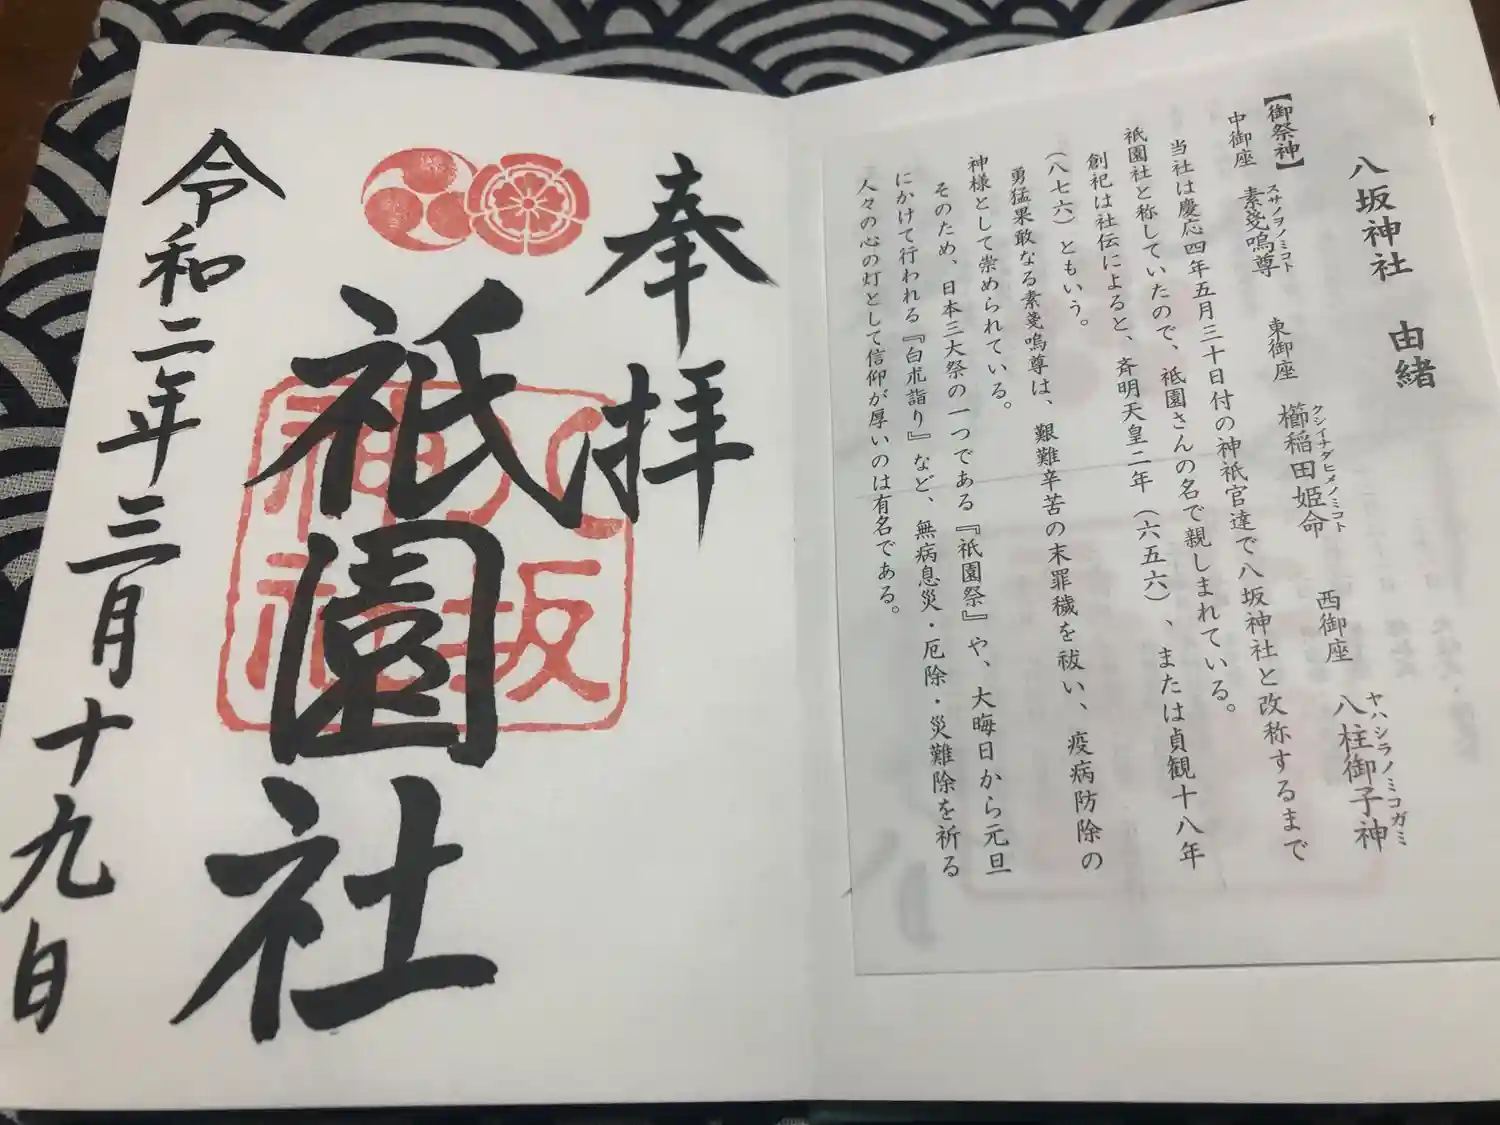 八坂神社　由緒
【御祭神】
中御座　素戔嗚尊　東御座　櫛稲田姫命　西御座　八柱御子神
スサノヲノミコト　クシイナダヒメノミコト　ヤハシラノミコガミ
当社は慶応四年五月三十日付の神祇官達で八坂神社と改称するまで
祇園社と称していたので、祇園さんの名で親しまれている。
創祀は社伝によると、斉明天皇二年（六五六）、または貞観十八年
（八七六）ともいう。
勇猛果敢なる素戔嗚尊は、艱難辛苦の末罪穢を祓い、疫病防除の
神様として崇められている。
そのため、日本三大祭の一つである『祇園祭』や、大晦日から元旦
にかけて行われる『白朮詣り』など、無病息災・厄除・災難除を祈る
人々の心の灯として信仰が厚いのは有名である。
奉拝
祇園社
八坂
神社
令和二年三月十九日